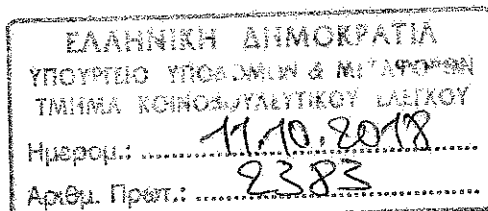 ΕΛΛΗΝΙΚΗ ΔΗΜΟΚΡΑΤΙΑ
ΥΠΟΥΡΓΕΙΟ ΥΠΟΔΟΜΩΝ & ΜΕΤΑΦΟΡΩΝ
ΤΜΗΜΑ ΚΟΙΝΟΒΟΥΛΕΥΤΙΚΟΥ ΕΛΕΓΧΟΥ
Ημερομ.: 11.10.2018
Αριθμ. Πρωτ.: 2383